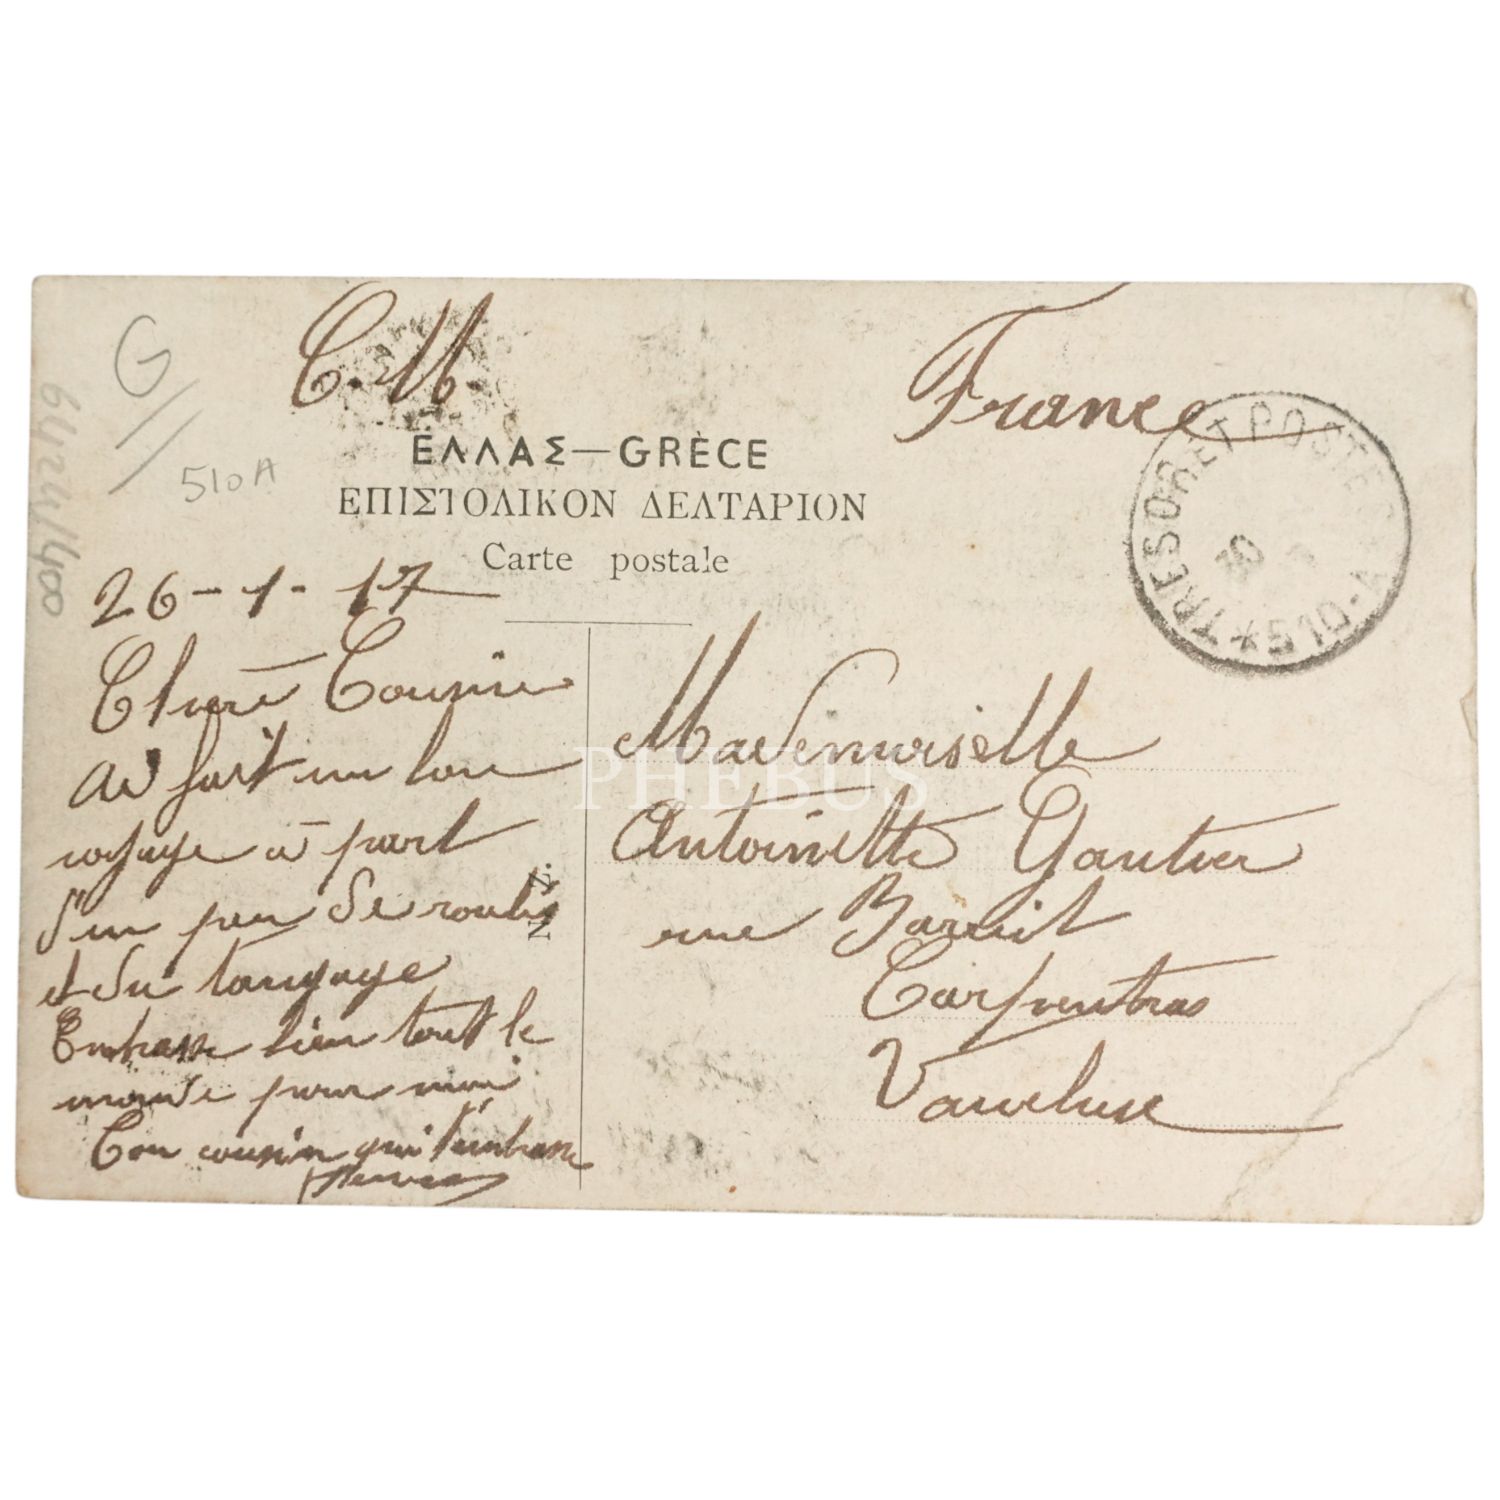 C. M.
France
G
510A
ΕΛΛΑΣ—GRÈCE
ΕΠΙΣΤΟΛΙΚΟΝ ΔΕΛΤΑΡΙΟΝ
Carte postale
TRESOR ET POSTES
30
*510-A
26-1-17
Chère Cousine
Ai fait un bon
voyage à part
d'un peu de roulis
et du tangage
Embrasse bien tout le
monde pour moi
Ton cousin qui t'embrasse
Mademoiselle
Antoinette Gautier
rue
Carpentras
Vaucluse
PHEBUS